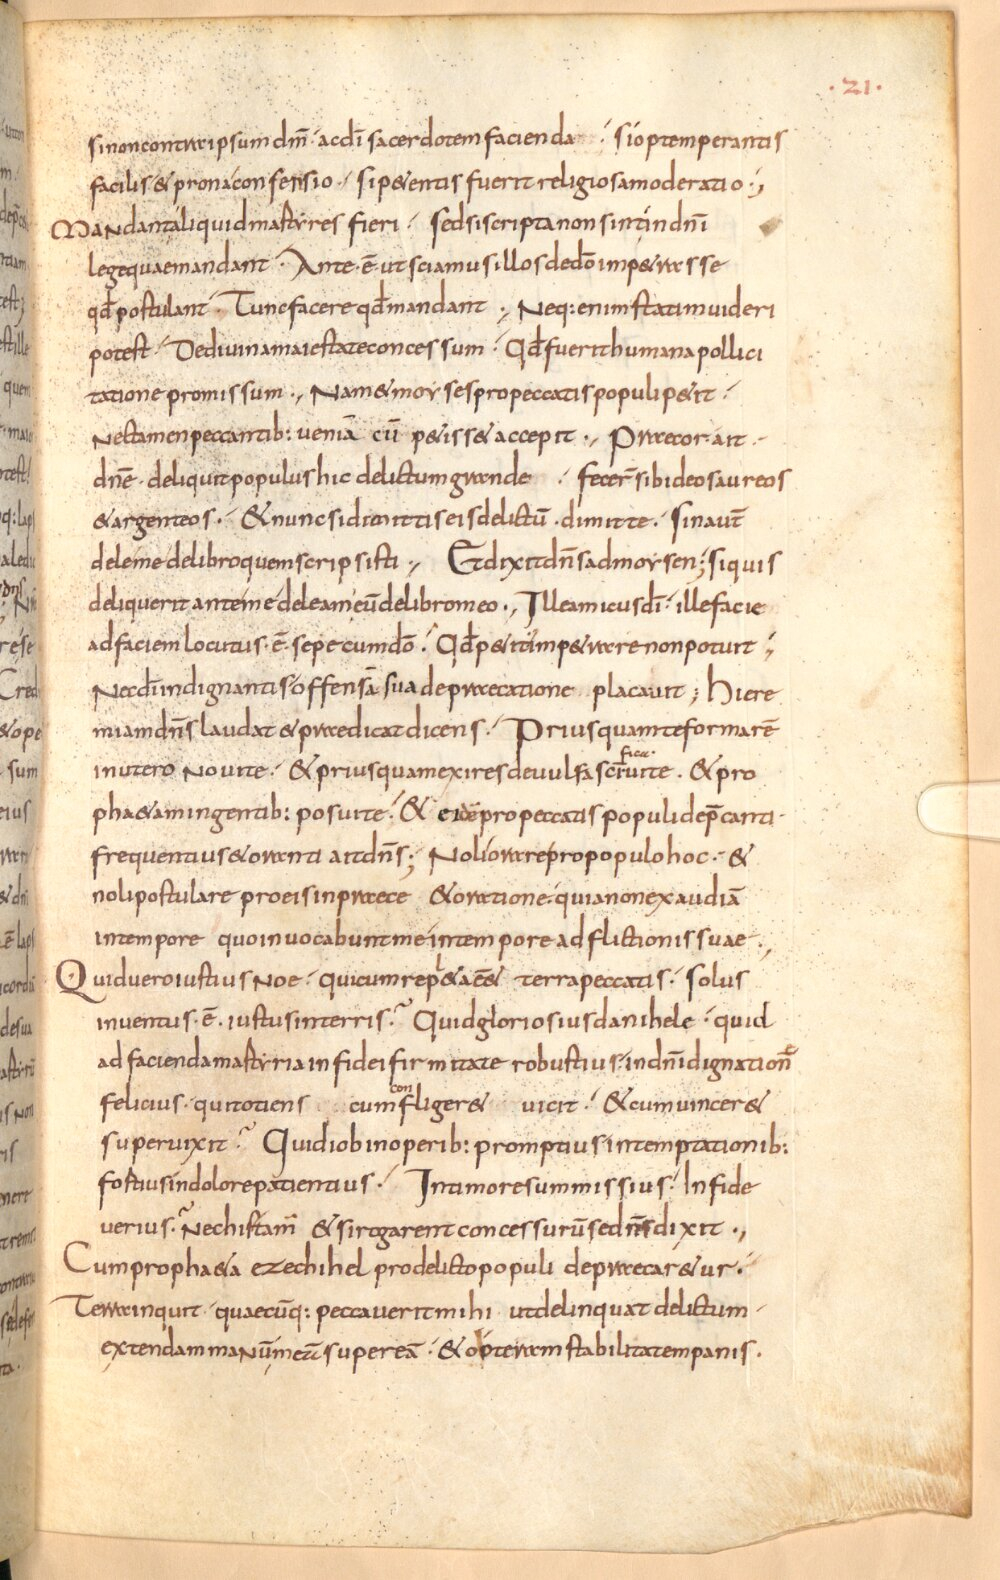 ·21·
si non contra ipsum dnm̄ · ac dī sacerdotem facienda · si optemperantis
facilis & prona confensio · si p&entis fuerit religiosa moderatio ·,
Mandant aliquid martyres fieri · sed si scripta non sint in dnī
lege quae mandant · Ante · ē · ut sciamus illos de dō imp&rasse
qđ postulant · Tunc facere qđ mandant ·, Neq: enim statim uideri
potest · De diuina maiestate concessum · Qđ fuerit humana pollici
tatione promissum ·, Nam & moyses pro peccatis populi p&iit ·
Nec tamen peccantib: ueniā cū p&iss& accepit ·, Praecor · ait ·
dnē · deliquit populus hic delictum grande · fecer̄ sibi deos aureos
& argenteos · & nunc si dimittis eis delictū · dimitte · sin aut̄
dele me de libro quem scripsisti ·, Et dixit dn̄s ad moysen; si quis
deliquerit ante me deleam eū de libro meo ·, Ille amicus dī · ille facie
ad faciem locutus · ē · sepe cum dō · Qđ p&iit imp&rare non potuit ;
Nec dī indignantis offensā sua depraecatione placauit ; Hiere
miam dn̄s laudat & praedicat dicens · Priusquam te formarē
in utero Noui te · & priusquam exires de uulfa scīficaui te · & pro
pha&am in gentib: posui te · & eidē pro peccatis populi dep̄canti ·
frequentius & oranti ait dn̄s; Noli orare pro populo hoc · &
noli postulare pro eis in praece & oratione · quia non exaudiā
in tempore quo inuocabunt me in tempore adflictionis suae ·,
Quid uero iustius Noe · qui cum repl&a ēē& terra peccatis · solus
inuentus · ē · iustus in terris · Quid gloriosius danihele · quid
ad facienda martyria in fidei firmitate robustius · in dnī dignationē
felicius · qui totiens cum confliger& uicit · & cum uincer&
superuixit · Quid iob in operib: promptius in temptationib:
fortius in dolore patientius · In timore summissius · In fide
uerius · Nec his tam̄ & si rogarent concessurū se dn̄s dixit ·,
Cum propha&a ezechihel pro delicto populi depraecar&ur ·
Terra inquit · quaecūq: peccauerit mihi ut delinquat delictum ·
extendam manū meā super eā · & opteram stabilitatem panis ·